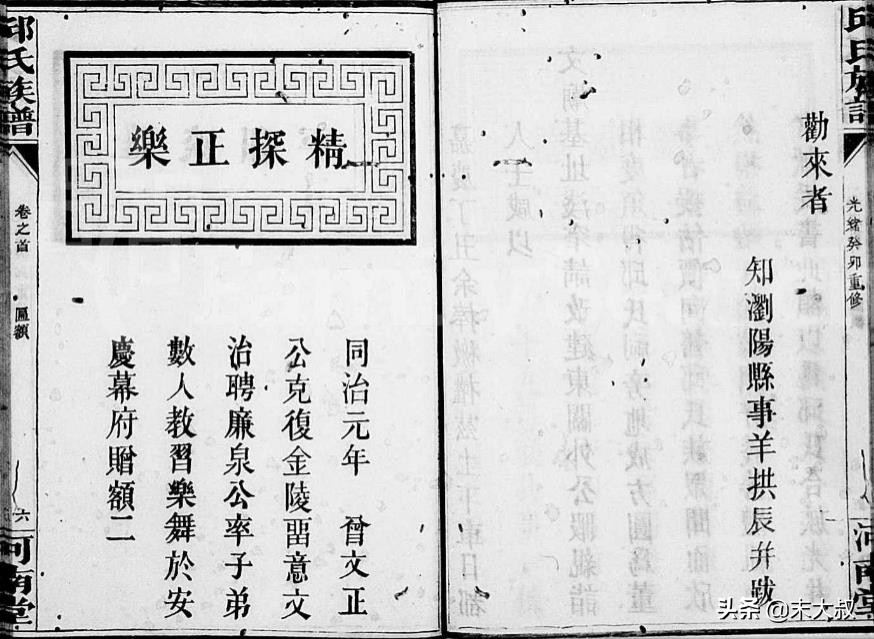 邱氏族譜
光緒癸卯重修
河南堂
勸來者
知瀏陽縣事羊拱辰幷跋
精探正樂
同治元年 曾文正
公克復金陵畱意文
治聘廉泉公率子弟
數人教習樂舞於安
慶幕府贈額二
邱氏族譜
卷之首
匾額
六
河南堂
头条@末大叔